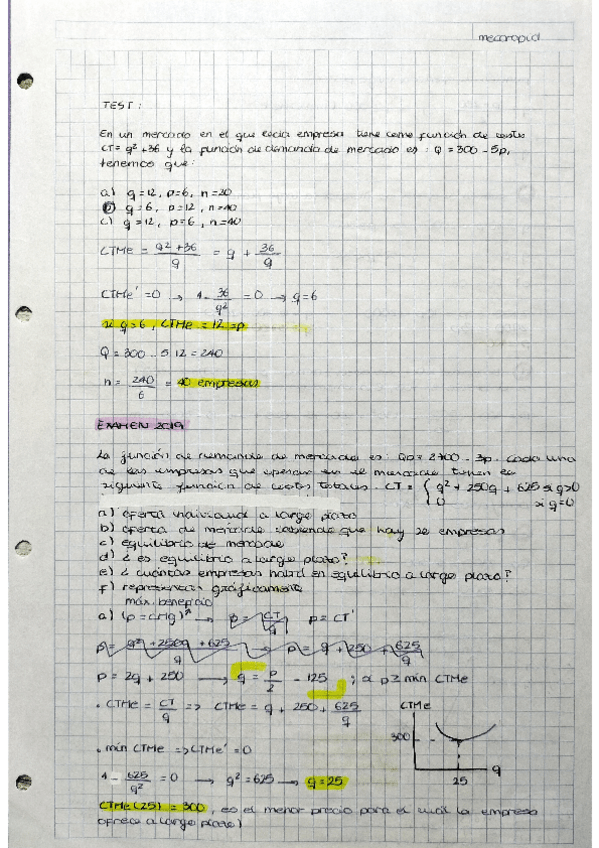 mecarapid
TEST:
En un mercado en el que cada empresa tiene como función de costes
CT = q² + 36 y la función de demanda de mercado es: Q = 300 - 5p,
tenemos que:
a) q = 12, p = 6, n = 20
b) q = 6, p = 12, n = 40
c) q = 12, p = 6, n = 40
CTMe = (q² + 36)/q = q + 36/q
CTMe' = 0 → 1 - 36/q² = 0 → q = 6
si q = 6, CTMe = 12 = p
Q = 300 - 5·12 = 240
n = 240/6 = 40 empresas
EXAMEN 2019
La función de demanda de mercado es: QD = 2700 - 3p. Cada una
de las empresas que operan en el mercado tienen la
siguiente función de costes totales. CT = { q² + 250q + 625 si q>0
0 si q=0
a) oferta individual a largo plazo
b) oferta de mercado sabiendo que hay empresas
c) equilibrio de mercado
d) ¿es equilibrio a largo plazo?
e) ¿cuántas empresas habrá en equilibrio a largo plazo?
f) representar gráficamente
máx. beneficio
a) (p = CMg) → p = CT/q p = CT'
p = (q² + 250q + 625)/q → p = q + 250 + 625/q
p = 2q + 250 → q = p/2 - 125 ; si p ≥ mín CTMe
· CTMe = CT/q => CTMe = q + 250 + 625/q
CTMe
300
25
q
· mín CTMe => CTMe' = 0
1 - 625/q² = 0 → q² = 625 → q = 25
CTMe(25) = 300, es el menor precio para el cual la empresa
ofrece a largo plazo)